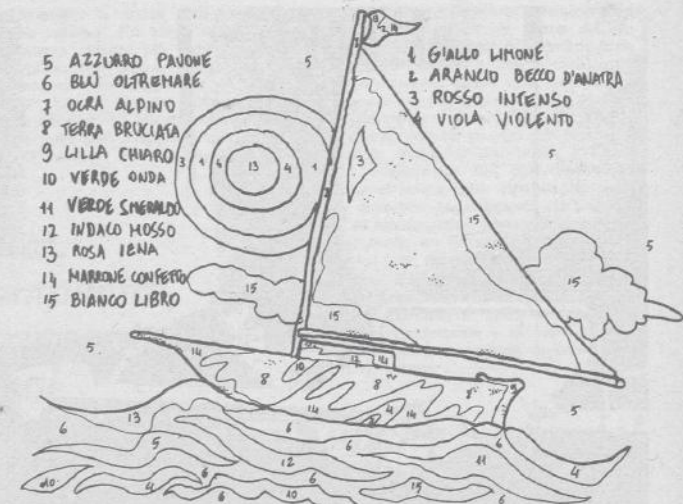 5 AZZURRO PAVONE
6 BLÙ OLTREMARE
7 OCRA ALPINO
8 TERRA BRUCIATA
9 LILLA CHIARO
10 VERDE ONDA
11 VERDE SMERALDO
12 INDACO MOSSO
13 ROSA IENA
14 MARRONE CONFETTO
15 BIANCO LIBRO
1 GIALLO LIMONE
2 ARANCIO BECCO D'ANATRA
3 ROSSO INTENSO
4 VIOLA VIOLENTO
5
5
5
3 1 4 13 4 1
3
15
15
5
15
15
5
14
12 14
10
8
8
8
14
4
14
5
13
6
6
6
6
5
12
11
4
6
10
4
6
6
15
6
10
6